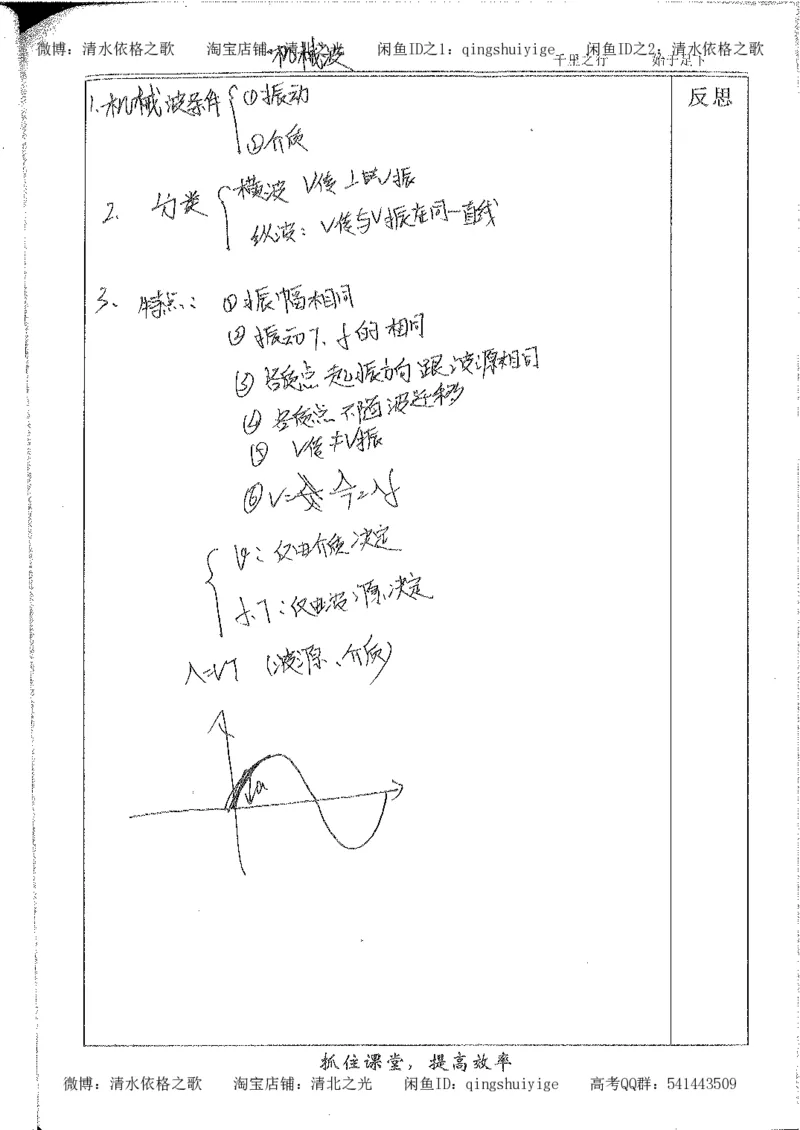 微博：清水依格之歌 淘宝店铺：清 闲鱼ID之1：qingshuiyige 闲鱼ID之2：清水依格之歌
机械波
千里之行 始于足下
反思
1. 机械波条件 ①振动
②介质
2. 分类 横波 V传⊥V振
纵波：V传与V振在同一直线
3、特点：①振幅相同
②振动T、f的相同
③各质点起振方向跟波源相同
④各质点不随波迁移
⑤ V传≠V振
⑥V=λ/T=λf
v：仅由介质决定
f、T：仅由波源决定
λ=VT (波源、介质)
a
抓住课堂，提高效率
微博：清水依格之歌 淘宝店铺：清北之光 闲鱼ID：qingshuiyige 高考QQ群：541443509